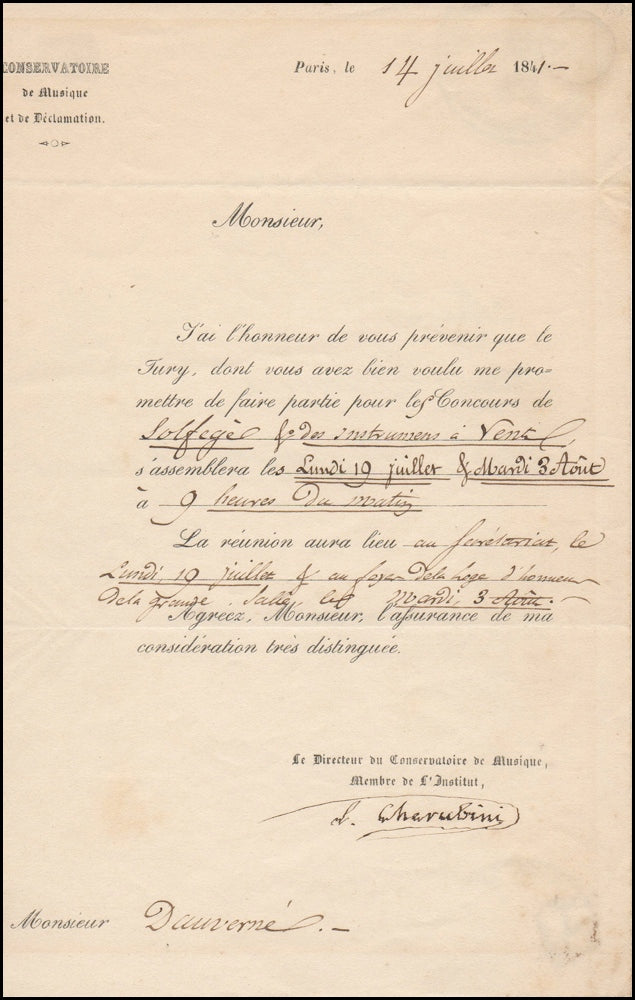 CONSERVATOIRE
de Musique
et de Déclamation.
Paris, le 14 juillet 1841.-
Monsieur,
J'ai l'honneur de vous prévenir que le
Jury, dont vous avez bien voulu me pro=
mettre de faire partie pour les Concours de
Solfège & des instrumens à Vent,
s'assemblera les Lundi 19 juillet & Mardi 3 Août
à 9 heures du matin
La réunion aura lieu au secrétariat, le
Lundi, 19 juillet & au foyer de la loge d'honneur
de la grande Salle, le mardi, 3 Août.-
Agréez, Monsieur, l'assurance de ma
considération très distinguée.
Le Directeur du Conservatoire de Musique,
Membre de L'Institut,
L. Cherubini
Monsieur Dauverné.-